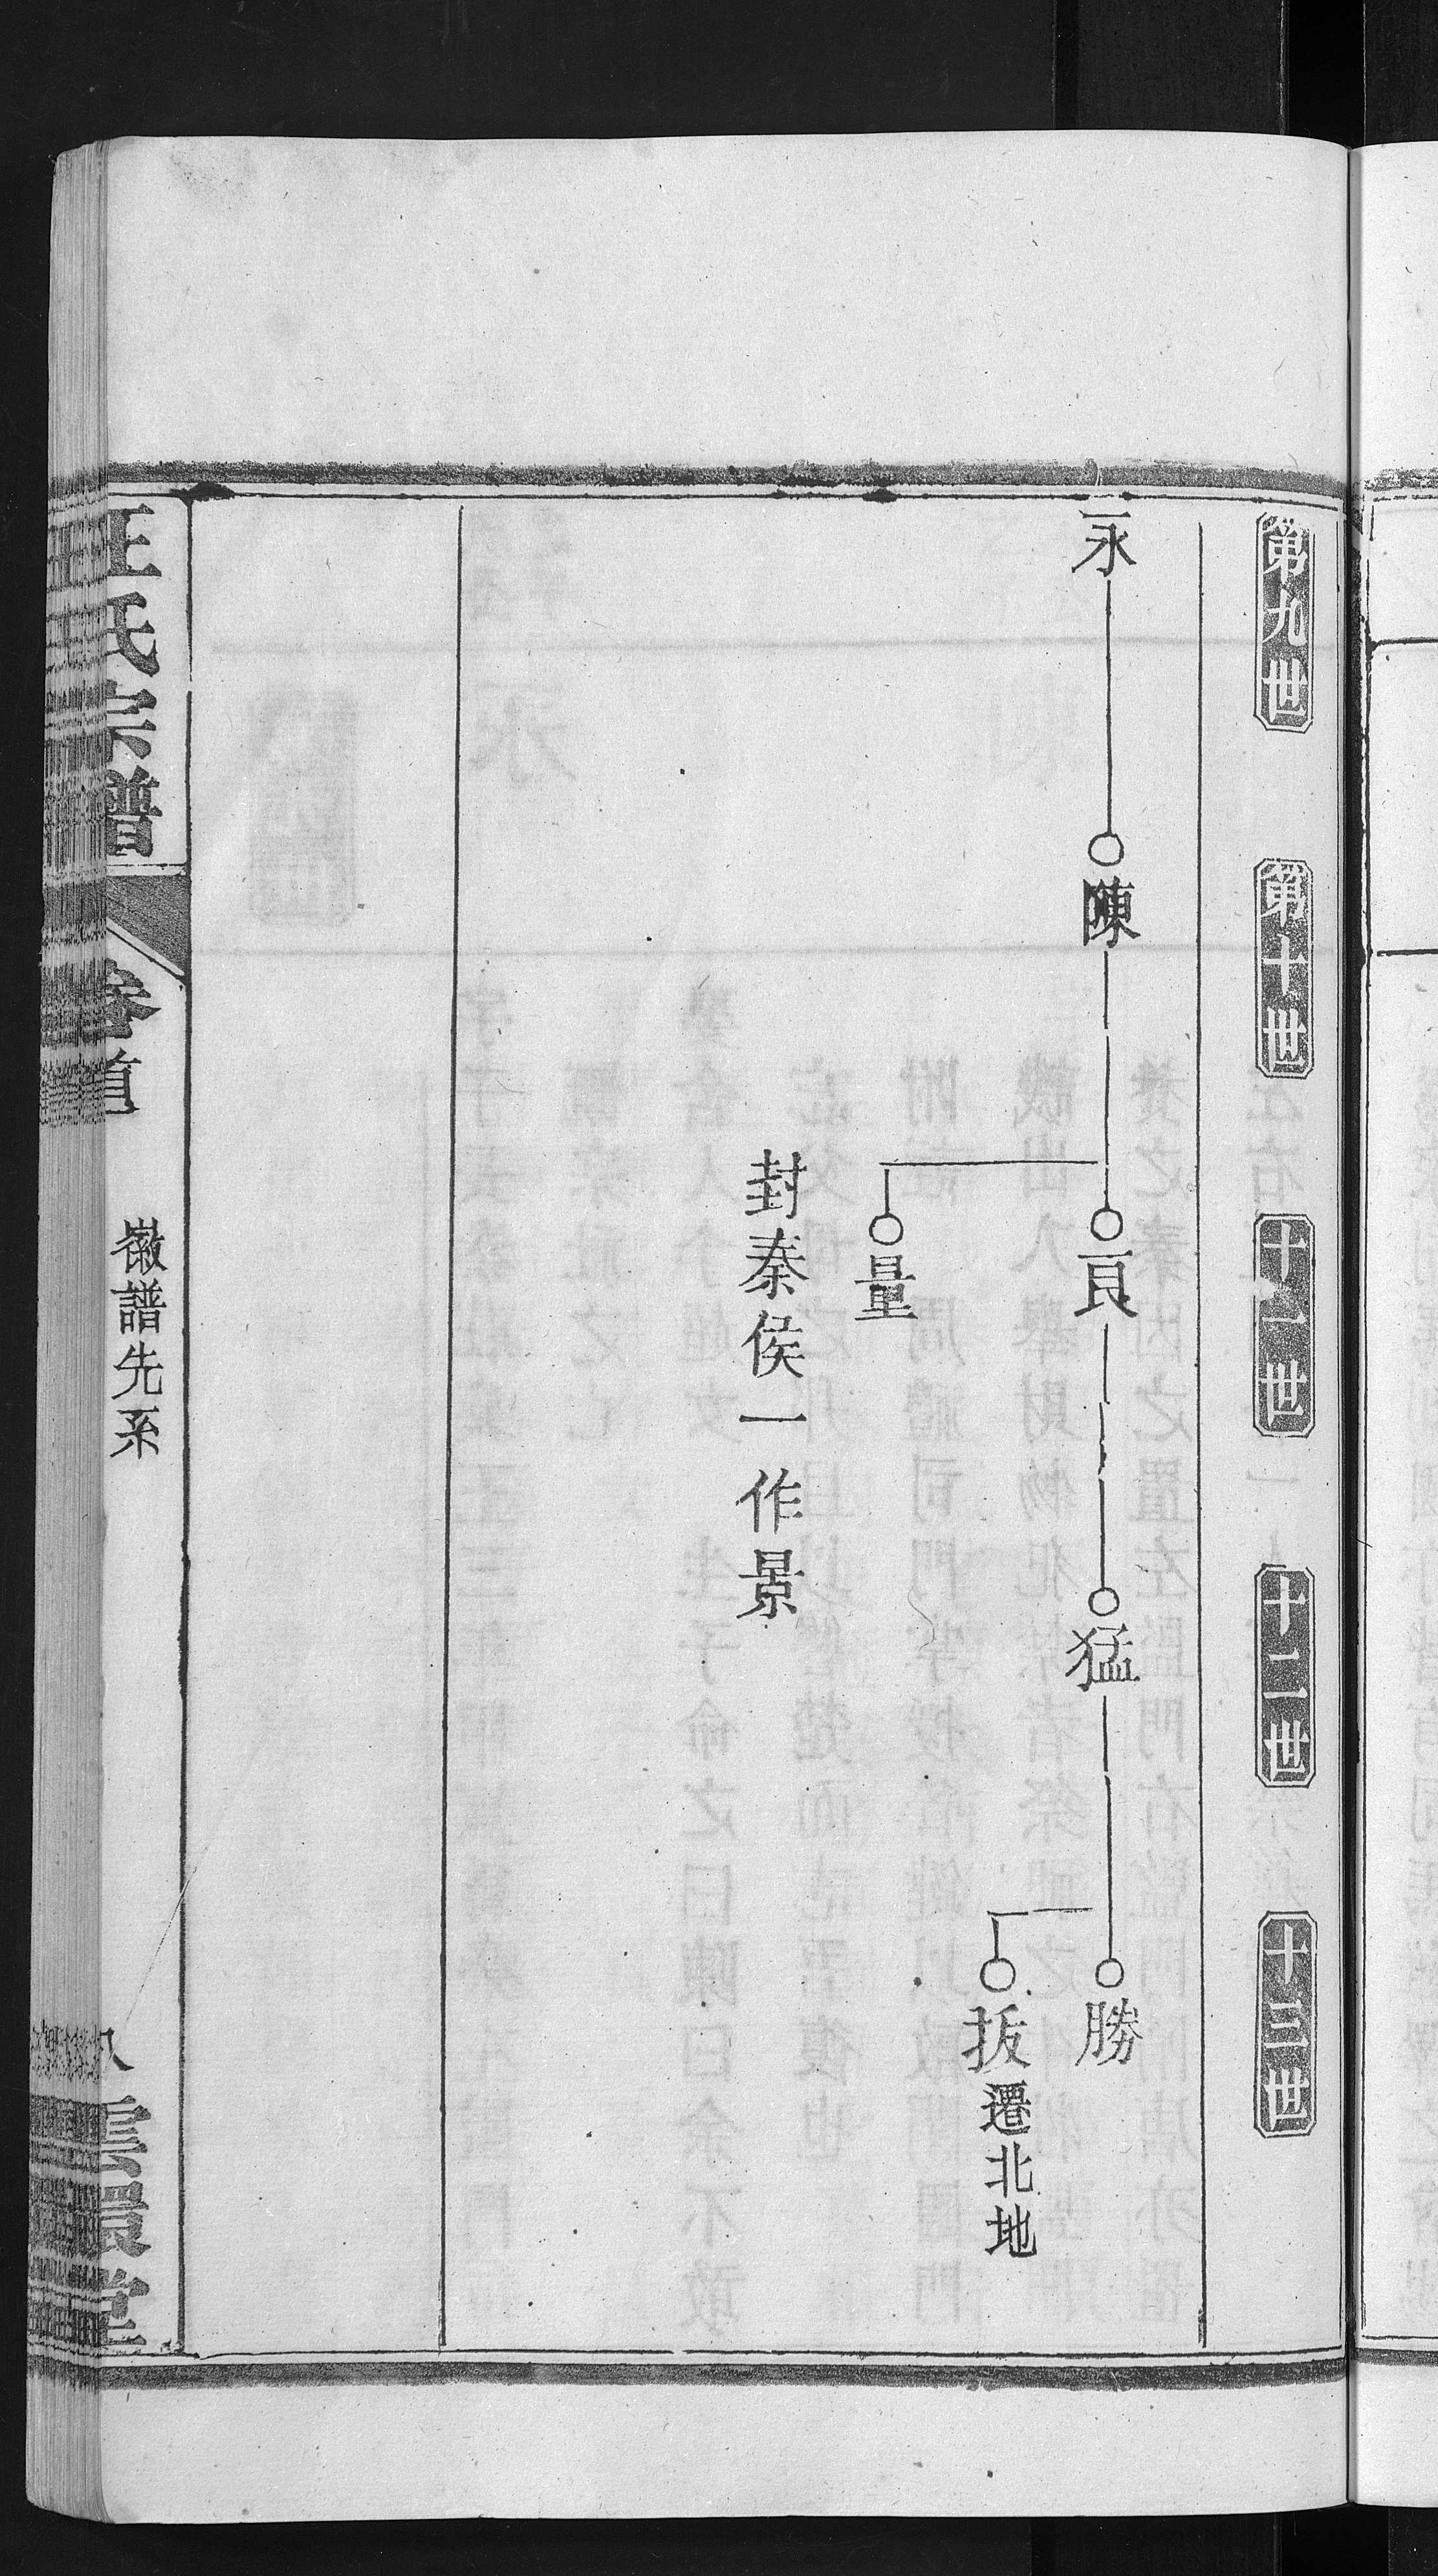 第九世
第十世
十一世
十二世
十三世
永
陳
良
猛
勝
量
扳遷北地
封秦侯一作景
汪氏宗譜
卷首
徽譜先系
八
雲環堂